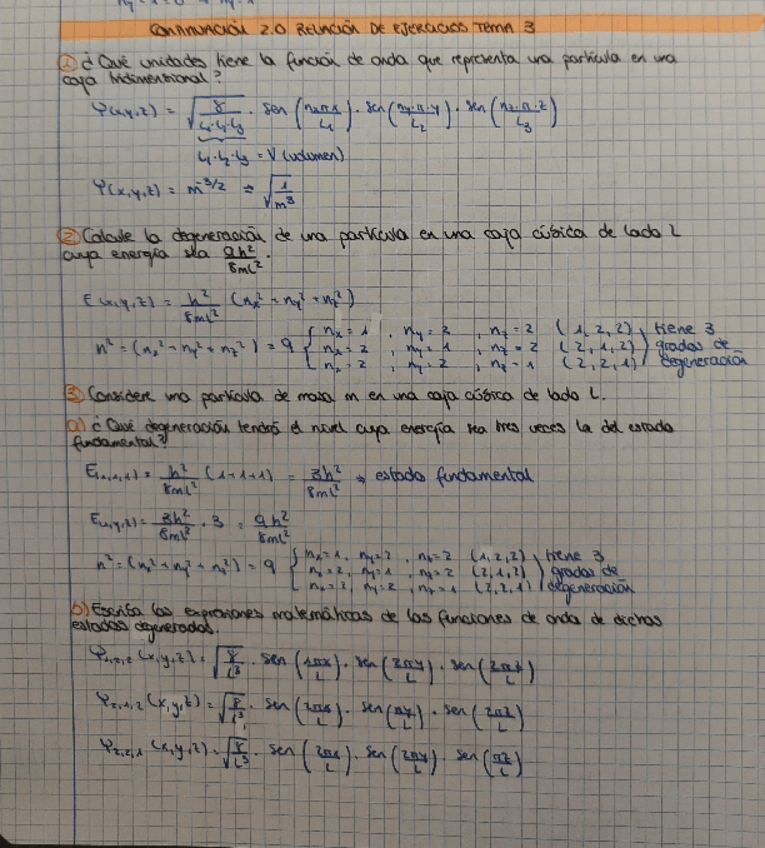 CONTINUACIÓN 2.0 RELACIÓN DE EJERCICIOS TEMA 3
① ¿Qué unidades tiene la función de onda que representa una partícula en una
caja tridimensional?
Ψ(x,y,z) = √(8/(L₁·L₂·L₃)) · sen(nxπx/L₁) · sen(ny·π·y/L₂) · sen(nz·π·z/L₃)
L₁·L₂·L₃ = V (volumen)
Ψ(x,y,z) = m^-3/2 ⇒ √(1/m³)
② Calcule la degeneración de una partícula en una caja cúbica de lado L
cuya energía sea 9h²/8mL².
E(x,y,z) = h²/8mL² (nx² + ny² + nz²)
n² = (nx² + ny² + nz²) = 9 { nx = 1 , ny = 2 , nz = 2 (1,2,2) } tiene 3
nx = 2 , ny = 1 , nz = 2 (2,1,2) } grados de
nx = 2 , ny = 2 , nz = 1 (2,2,1) } degeneración
③ Considere una partícula de masa m en una caja cúbica de lado L.
a) ¿Qué degeneración tendrá el nivel cuya energía sea tres veces la del estado
fundamental?
E(1,1,1) = h²/8mL² (1+1+1) = 3h²/8mL² ⇒ estado fundamental
E(x,y,z) = 3h²/8mL² · 3 = 9h²/8mL²
n² = (nx² + ny² + nz²) = 9 { nx = 1, ny = 2 , nz = 2 (1,2,2) } tiene 3
nx = 2, ny = 1 , nz = 2 (2,1,2) } grados de
nx = 2, ny = 2 , nz = 1 (2,2,1) } degeneración
b) Escriba las expresiones matemáticas de las funciones de onda de dichos
estados degenerados.
Ψ1,2,2 (x,y,z) = √(8/L³) · sen(1πx/L) · sen(2πy/L) · sen(2πz/L)
Ψ2,1,2 (x,y,z) = √(8/L³) · sen(2πx/L) · sen(πy/L) · sen(2πz/L)
Ψ2,2,1 (x,y,z) = √(8/L³) · sen(2πx/L) · sen(2πy/L) · sen(πz/L)